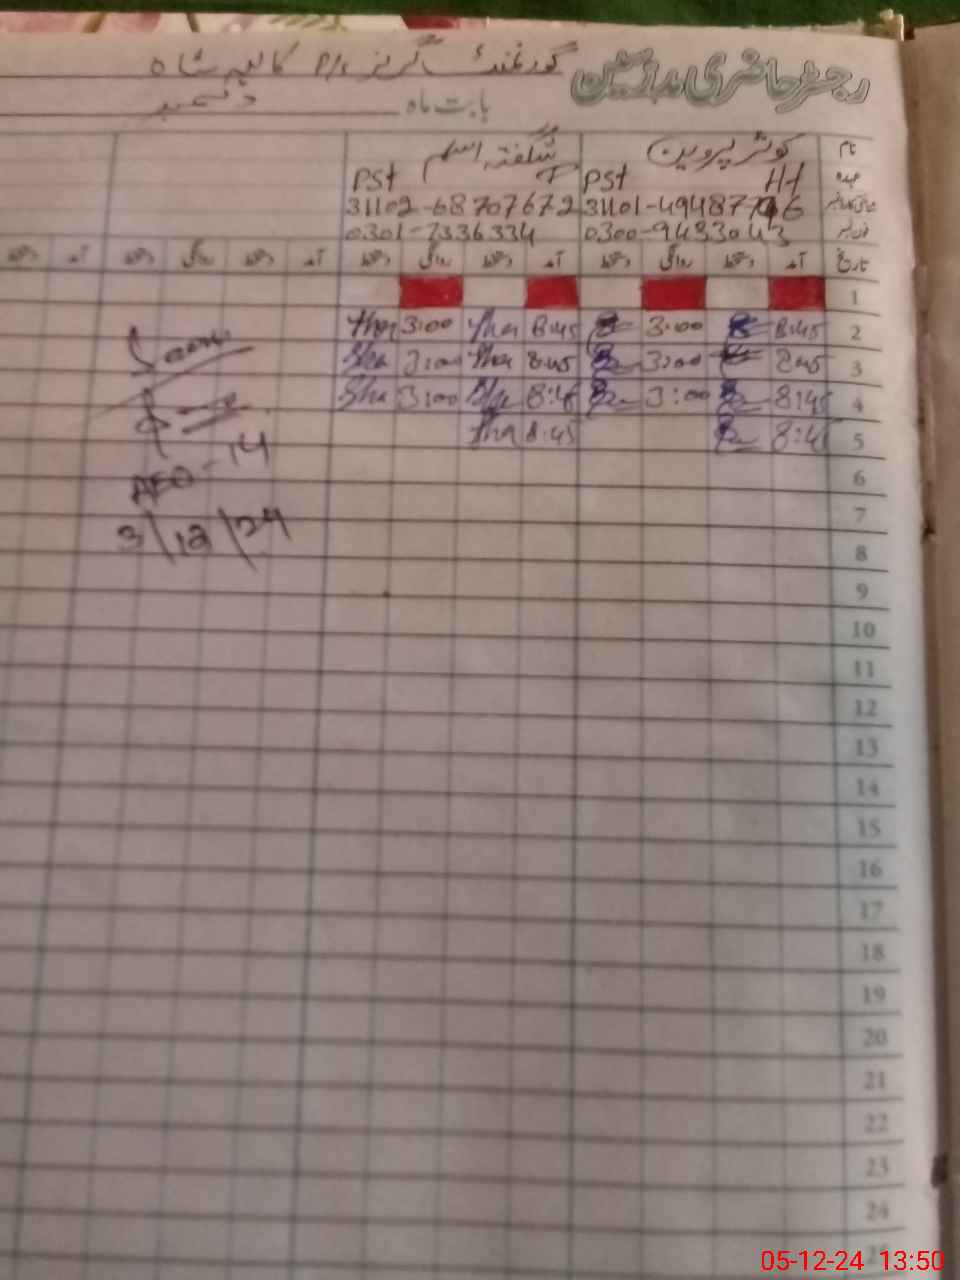 رجسٹر حاضری مدرسین گورنمنٹ گرلز P/S شاہ
بابت ماہ دسمبر
نام کوثر پروین شگفتہ اسلم
عہدہ Ht PST PST
31101-4948 31102-68707672
فون نمبر 0300-9483043 0301-7336334
تاریخ آمد دستخط روانگی دستخط آمد دستخط روانگی دستخط آمد دستخط روانگی دستخط آمد دستخط
1
2 8:45 3:00 8:45 3:00
3 8:45 3:00 8:45 3:00
4 8:45 3:00 8:45 3:00
5 8:45 8:45
6
7
8
9
10
11
12
13
14
15
16
17
18
19
20
21
22
23
24
25
AEO-14
3/12/24
05-12-24 13:50